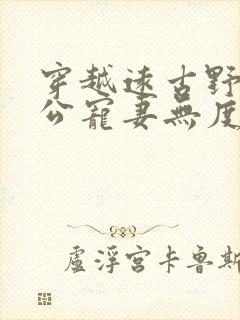 穿越遠古野
公寵妻無度
盧浮宮卡魯斯